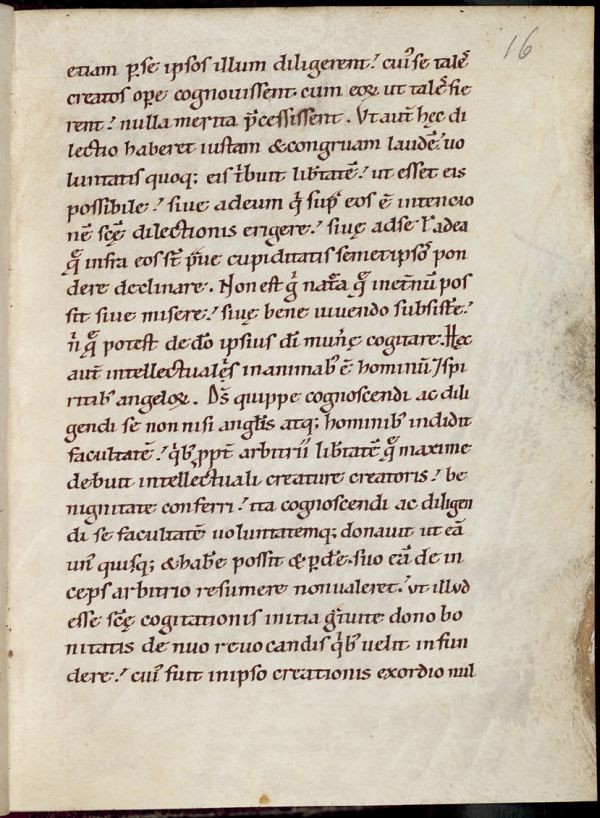 16
etiam ꝑ se ipsos illum diligerent! cuiꝰ se talē
creatos oꝑe cognouissent. cum eoꝝ ut talē fie
rent! nulla merita p̄cessissent. Ut aut̄ hęc di
lectio haberet iustam & congruam laudē! uo
luntatis quoq; eis t̄buit lib̄tatē! ut esset eis
possibile! siue ad eum q̄ sup̄ eos ē intentio
nē scę̄ dilectionis erigere! siuę ad se ł ad ea
quę infra eos st̄ p̄ue cupiditatis semetipsoꝰ pon
dere declinare. Non est ḡ nat̄a quę inet̄nū pos
sit siue misere! siuę bene uiuendo subsist̄e!
n̄ quę potest de dō ipsius dī munę cogitare. Hęc
aut̄ intellectualęs in animabꝰ ē hominū ⁊ spi
ritibꝰ angeloꝝ. D̄s quippe cognoscendi ac dili
gendi se non nisi angl̄is atq; hominibꝰ indidit
facultatē! q̄bꝰ ꝓpt̄ arbitrii lib̄tatē quę maxime
debuit intellectuali creature creatoris! be
nignitate conferri! ita cognoscendi ac diligen
di se facultatē uoluntatemq; donauit ut eā
unꝰ quisq; & hab̄e possit & ꝑd̄e. suo eā dein
ceps arbitrio resumere non ualeret! ut illud
esse scę̄ cogitationis initia ḡtuite dono bo
nitatis denuo reuocandis q̄bꝰ uelit infun
dere! cuiꝰ fuit in ipso creationis exordio nul